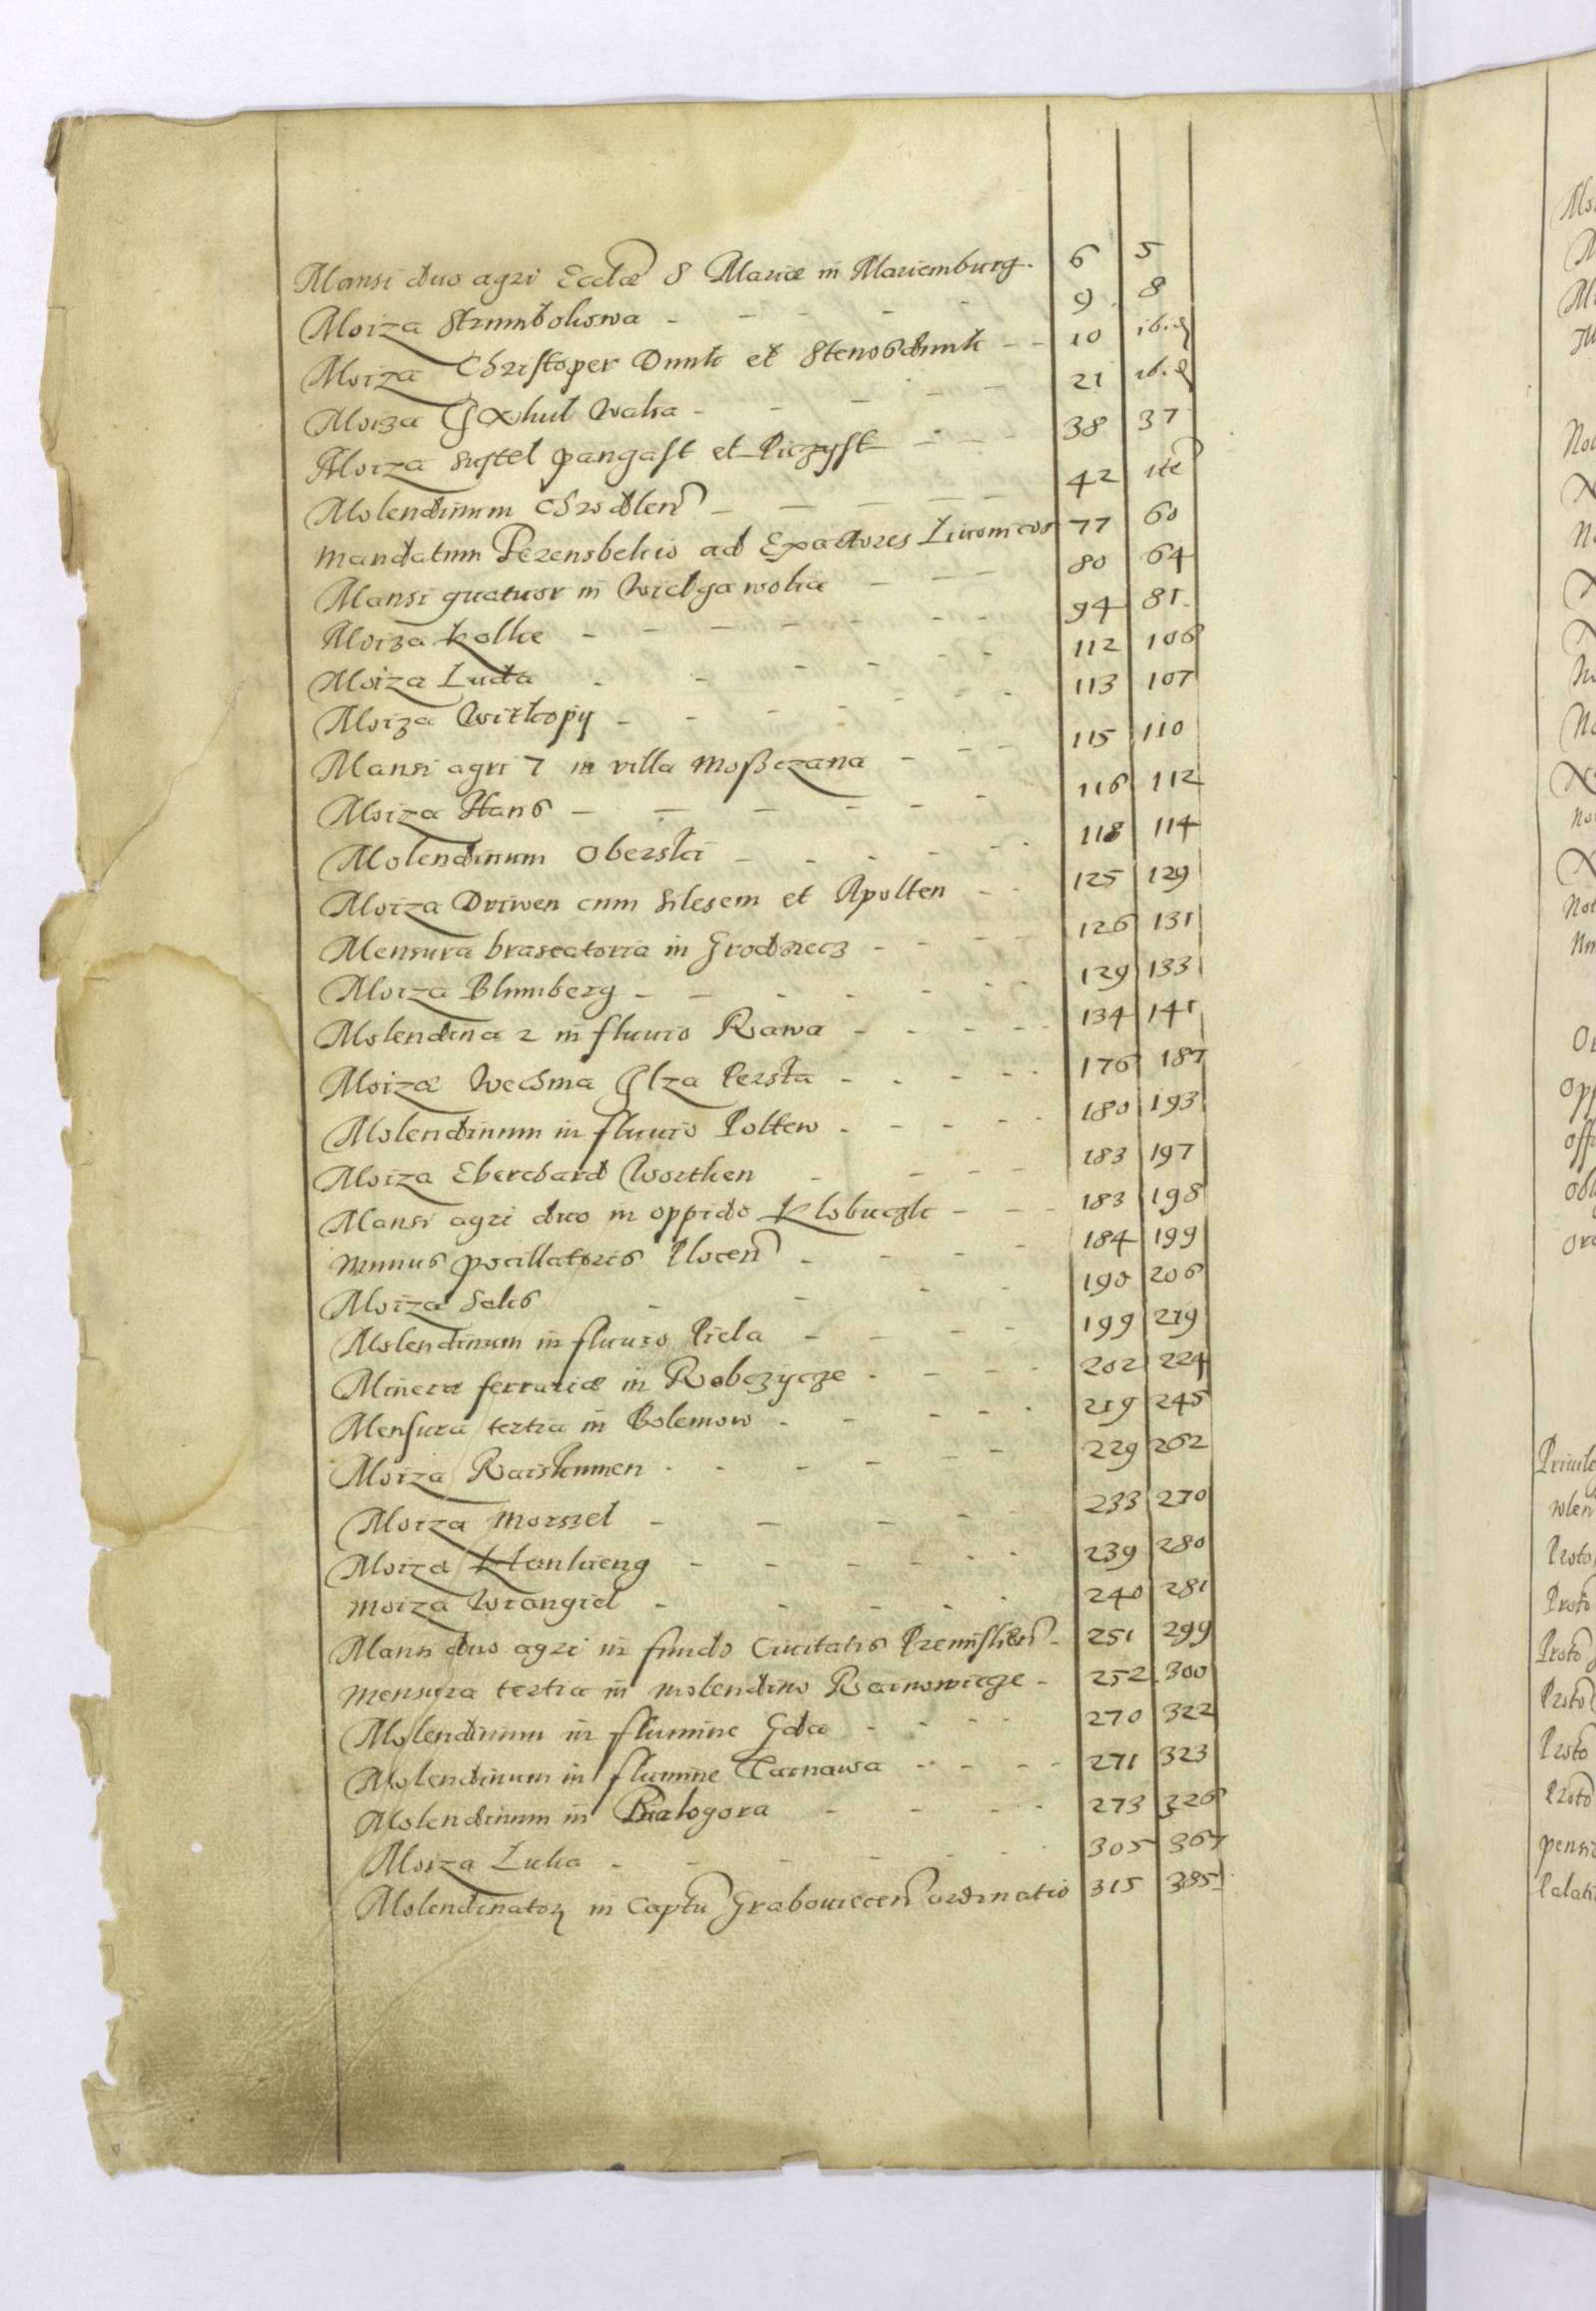 Mansi duo agri Ecclae S Mariae in Mariemburg. 6 5
Moiza Strumbolowa - - - - - 9 8
Moiza Christoper Dunk et Stenosdunk - - 10 ib.
Moiza Walia - - - - - 21 ib.
Moiza Sustel Pangast et Piczyst - - - 38 37
Molendinum Chrodlen - - - - - 42 ite
Mandatum Perensbekio ad Exactores Livonicos 77 60
Mansi quatuor in Widga wolia - - - 80 64
Moiza Kolke - - - - - - - 94 81.
Moiza Luda - - - - - - 112 106
Moiza Witkopy - - - - - - 113 107
Mansi agri 7 in villa Moßczana - - - 115 110
Moiza Hans - - - - - - 116 112
Molendinum Oberski - - - - - 118 114
Moiza Driwen cum Silesem et Apolten - - 125 129
Mensura braseatoria in Grodziecz - - - - 126 131
Moiza Blumberg - - - - - - - 129 133
Molendina 2 in fluuio Rawa - - - - - 134 141
Moizae Wechma Ilza Persta - - - - - 176 187
Molendinum in fluuio Poltew - - - - 180 193
Moiza Eberchard Worthen - - - - 183 197
Mansi agri duo in oppido Klobuczk - - - 183 198
Munus pocillatoris Plocen - - - - 184 199
Moiza Salis - - - - 190 206
Molendinum in fluuio Piela - - - - 199 219
Minera ferrariae in Robczycze - - - - 202 224
Mensura tertia in Bolemow - - - - - 219 245
Moiza Raiskumen - - - - - 229 262
Moiza Morszel - - - - - 233 270
Moiza Klonkieng - - - - - - 239 280
Moiza Wrangiel - - - - - 240 281
Mansi duo agri in fundo Ciuitatis Premislien - 251 299
Mensura tertia in molendino Rainowicze - 252 300
Molendinum in flumine Gda - - - - 270 322
Molendinum in flumine Tarnawa - - - - 271 323
Molendinum in Bialogora - - - - 273 326
Moiza Luka - - - - - - 305 367
Molendinator in Captu Grabouiecen ordinatio 315 385